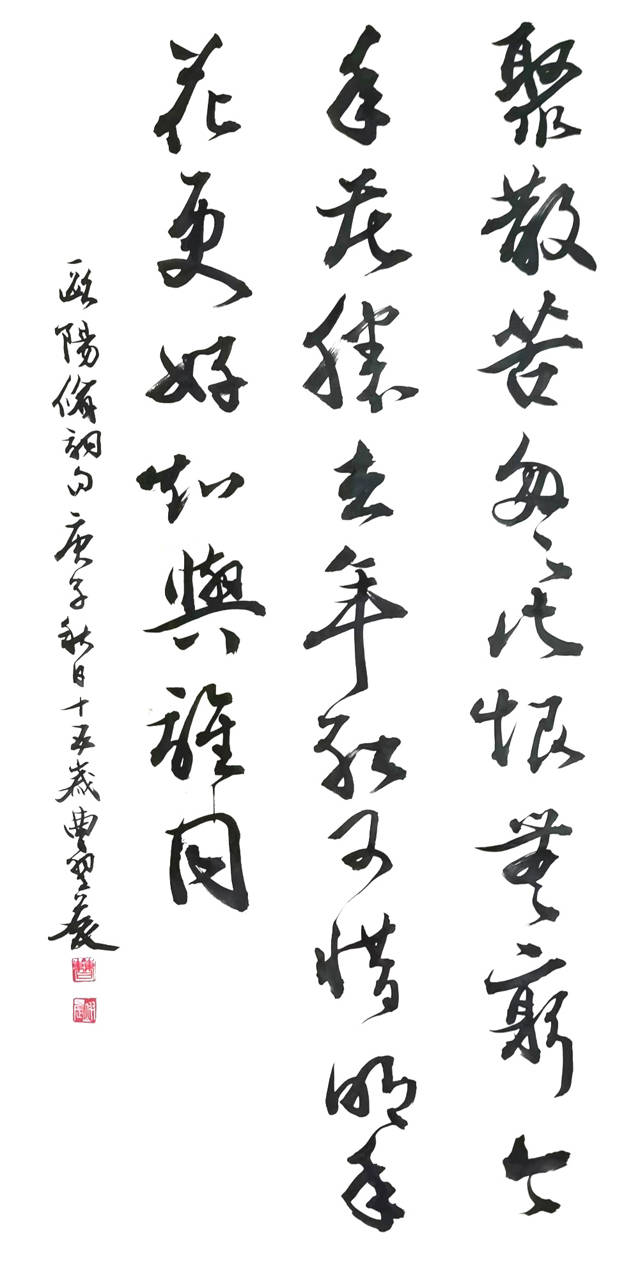 聚散苦匆〻此恨無窮今
年花勝去年紅可惜明年
花更好知與誰同
歐陽脩詞句庚子秋日十五歲曹翌